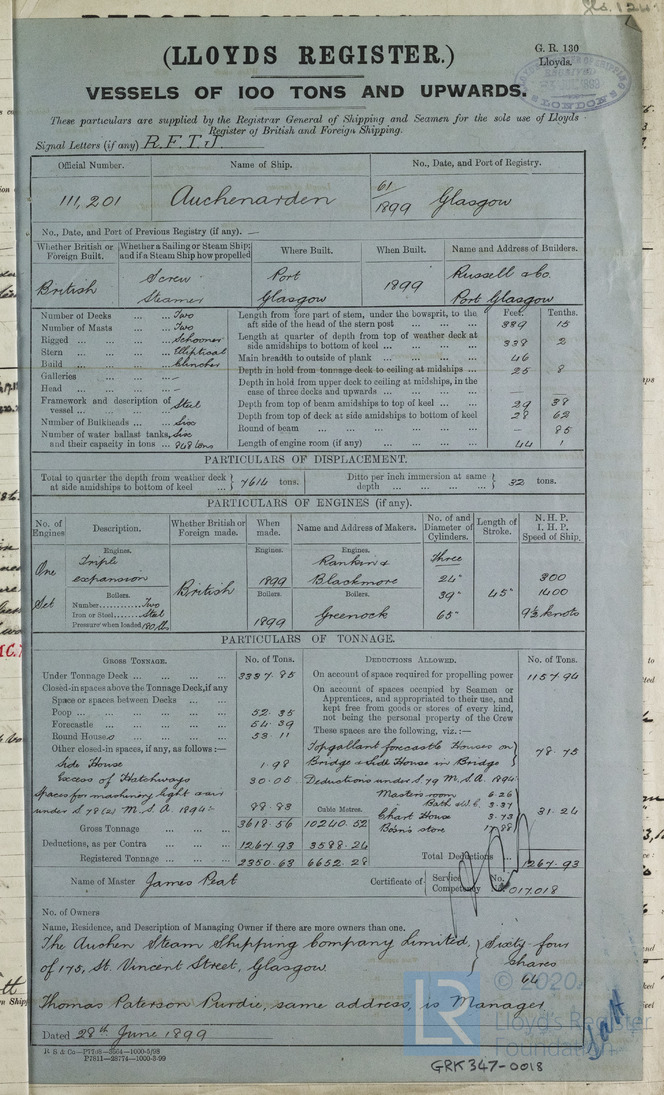 (LLOYDS REGISTER.)
G. R. 130
Lloyds.
VESSELS OF 100 TONS AND UPWARDS.
These particulars are supplied by the Registrar General of Shipping and Seamen for the sole use of Lloyds
Register of British and Foreign Shipping.
Signal Letters (if any) R.F.T.J.
Official Number. Name of Ship. No., Date, and Port of Registry.
111,201 Auchenarden 61/1899 Glasgow
No., Date, and Port of Previous Registry (if any). —
Whether British or Foreign Built. Whether a Sailing or Steam Ship; and if a Steam Ship how propelled Where Built. When Built. Name and Address of Builders.
British Screw Steamer Port Glasgow 1899 Russell & Co. Port Glasgow
Number of Decks ... ... Two
Number of Masts ... ... Two
Rigged ... ... ... Schooner
Stern ... ... ... Elliptical
Build ... ... ... Clincher
Galleries ... ... —
Head ... ... ... —
Framework and description of vessel ... ... ... Steel
Number of Bulkheads ... Six
Number of water ballast tanks, Six
and their capacity in tons ... 868 tons
Feet. Tenths.
Length from fore part of stem, under the bowsprit, to the aft side of the head of the stern post 339 15
Length at quarter of depth from top of weather deck at side amidships to bottom of keel 338 2
Main breadth to outside of plank 46
Depth in hold from tonnage deck to ceiling at midships 25 8
Depth in hold from upper deck to ceiling at midships, in the case of three decks and upwards
Depth from top of beam amidships to top of keel 29 38
Depth from top of deck at side amidships to bottom of keel 28 62
Round of beam 85
Length of engine room (if any) 44 1
PARTICULARS OF DISPLACEMENT.
Total to quarter the depth from weather deck at side amidships to bottom of keel 7614 tons. Ditto per inch immersion at same depth 32 tons.
PARTICULARS OF ENGINES (if any).
No. of Engines Description. Whether British or Foreign made. When made. Name and Address of Makers. No. of and Diameter of Cylinders. Length of Stroke. N. H. P. I. H. P. Speed of Ship.
Engines. Engines. Engines.
One Triple expansion British 1899 Rankin & Blackmore Three 24" 300
Boilers. Boilers. Boilers. 39" 45" 1400
Set Number Two
Iron or Steel Steel
Pressure when loaded 180 lbs 1899 Greenock 65" 9½ knots
PARTICULARS OF TONNAGE.
GROSS TONNAGE. No. of Tons. DEDUCTIONS ALLOWED. No. of Tons.
Under Tonnage Deck 3337.85
Closed-in spaces above the Tonnage Deck, if any
Space or spaces between Decks
Poop 52.35
Forecastle 54.39
Round House 53.11
Other closed-in spaces, if any, as follows:—
Side House 1.98
Excess of Hatchways 30.05
Spaces for machinery light & air
under S 78(2) M.S.A. 1894:- 88.83
Cubic Metres.
Gross Tonnage 3618.56 10240.52
Deductions, as per Contra 1267.93 3588.24
Registered Tonnage 2350.63 6652.28
On account of space required for propelling power 1157.94
On account of spaces occupied by Seamen or Apprentices, and appropriated to their use, and kept free from goods or stores of every kind, not being the personal property of the Crew
These spaces are the following, viz.:—
Topgallant forecastle Houses on
Bridge & Side House in Bridge 78.75
Deductions under S 79 M.S.A. 1894
Masters room 6.26
Bath & W.C. 3.37
Chart House 3.73
Bosn's store 17.88
31.24
Total Deductions 1267.93
Name of Master James Peat Certificate of Service Competency No. 017,018
No. of Owners
Name, Residence, and Description of Managing Owner if there are more owners than one.
The Auchen Steam Shipping Company Limited,
of 175, St. Vincent Street, Glasgow.
Sixty-four
shares
64
Thomas Paterson Purdie, same address, is Manager
Dated 28th June 1899
GRK347-0018
LR
© 2020
Lloyd's Register
Foundation